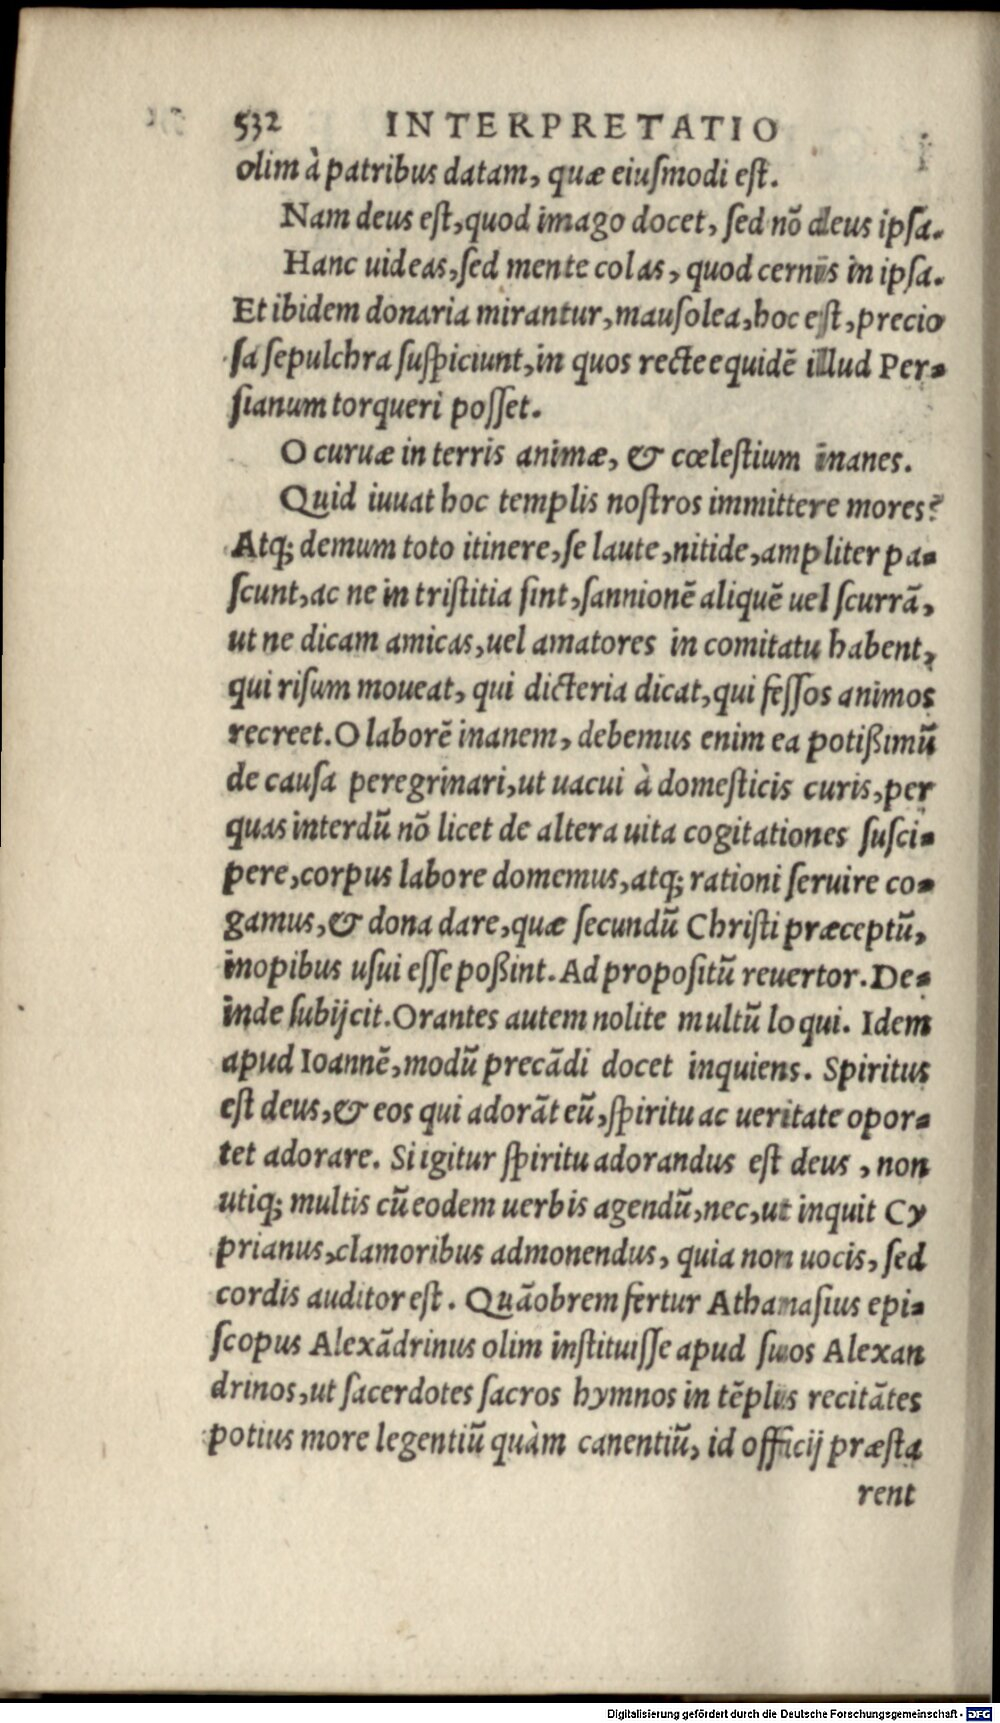 532 INTERPRETATIO
olim à patribus datam, quæ eiuſmodi eſt.
Nam deus eſt, quod imago docet, ſed nō deus ipſa.
Hanc uideas, ſed mente colas, quod cernis in ipſa.
Et ibidem donaria mirantur, mauſolea, hoc eſt, precio
ſa ſepulchra ſuſpiciunt, in quos recte equidē illud Per-
ſianum torqueri poſſet.
O curuæ in terris animæ, & cœleſtium inanes.
Quid iuuat hoc templis noſtros immittere mores?
Atq; demum toto itinere, ſe laute, nitide, ampliter pa-
ſcunt, ac ne in triſtitia ſint, ſannionē aliquē uel ſcurrā,
ut ne dicam amicas, uel amatores in comitatu habent,
qui riſum moueat, qui dicteria dicat, qui feſſos animos
recreet. O laborē inanem, debemus enim ea potißimū
de cauſa peregrinari, ut uacui à domeſticis curis, per
quas interdū nō licet de altera uita cogitationes ſuſci-
pere, corpus labore domemus, atq; rationi ſeruire co-
gamus, & dona dare, quæ ſecundū Chriſti præceptū,
inopibus uſui eſſe poßint. Ad propoſitū reuertor. De-
inde ſubijcit. Orantes autem nolite multū loqui. Idem
apud Ioannē, modū precādi docet inquiens. Spiritus
eſt deus, & eos qui adorāt eū, ſpiritu ac ueritate opor-
tet adorare. Si igitur ſpiritu adorandus eſt deus, non
utiq; multis cū eodem uerbis agendū, nec, ut inquit Cy
prianus, clamoribus admonendus, quia non uocis, ſed
cordis auditor eſt. Quāobrem fertur Athanaſius epi-
ſcopus Alexādrinus olim inſtituiſſe apud ſuos Alexan
drinos, ut ſacerdotes ſacros hymnos in tēplis recitātes
potius more legentiū quàm canentiū, id officij præſta
rent
Digitalisierung gefördert durch die Deutsche Forschungsgemeinschaft - DFG